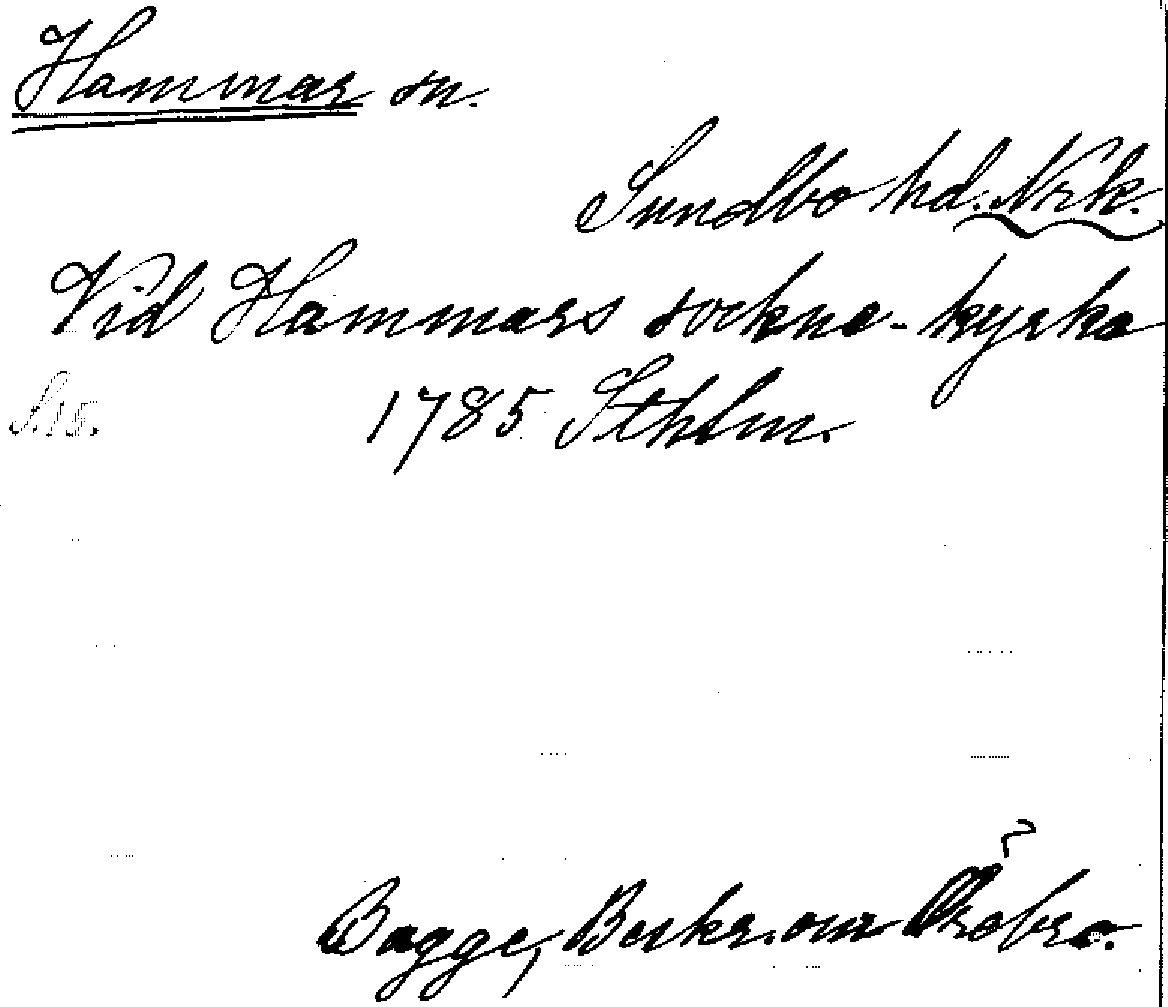 Hammar sn.
Sundbo hd. Nrk.
Vid Hammars sockne-kyrka
1785 Sthlm.
Bagge, Beskr. om Örebro.